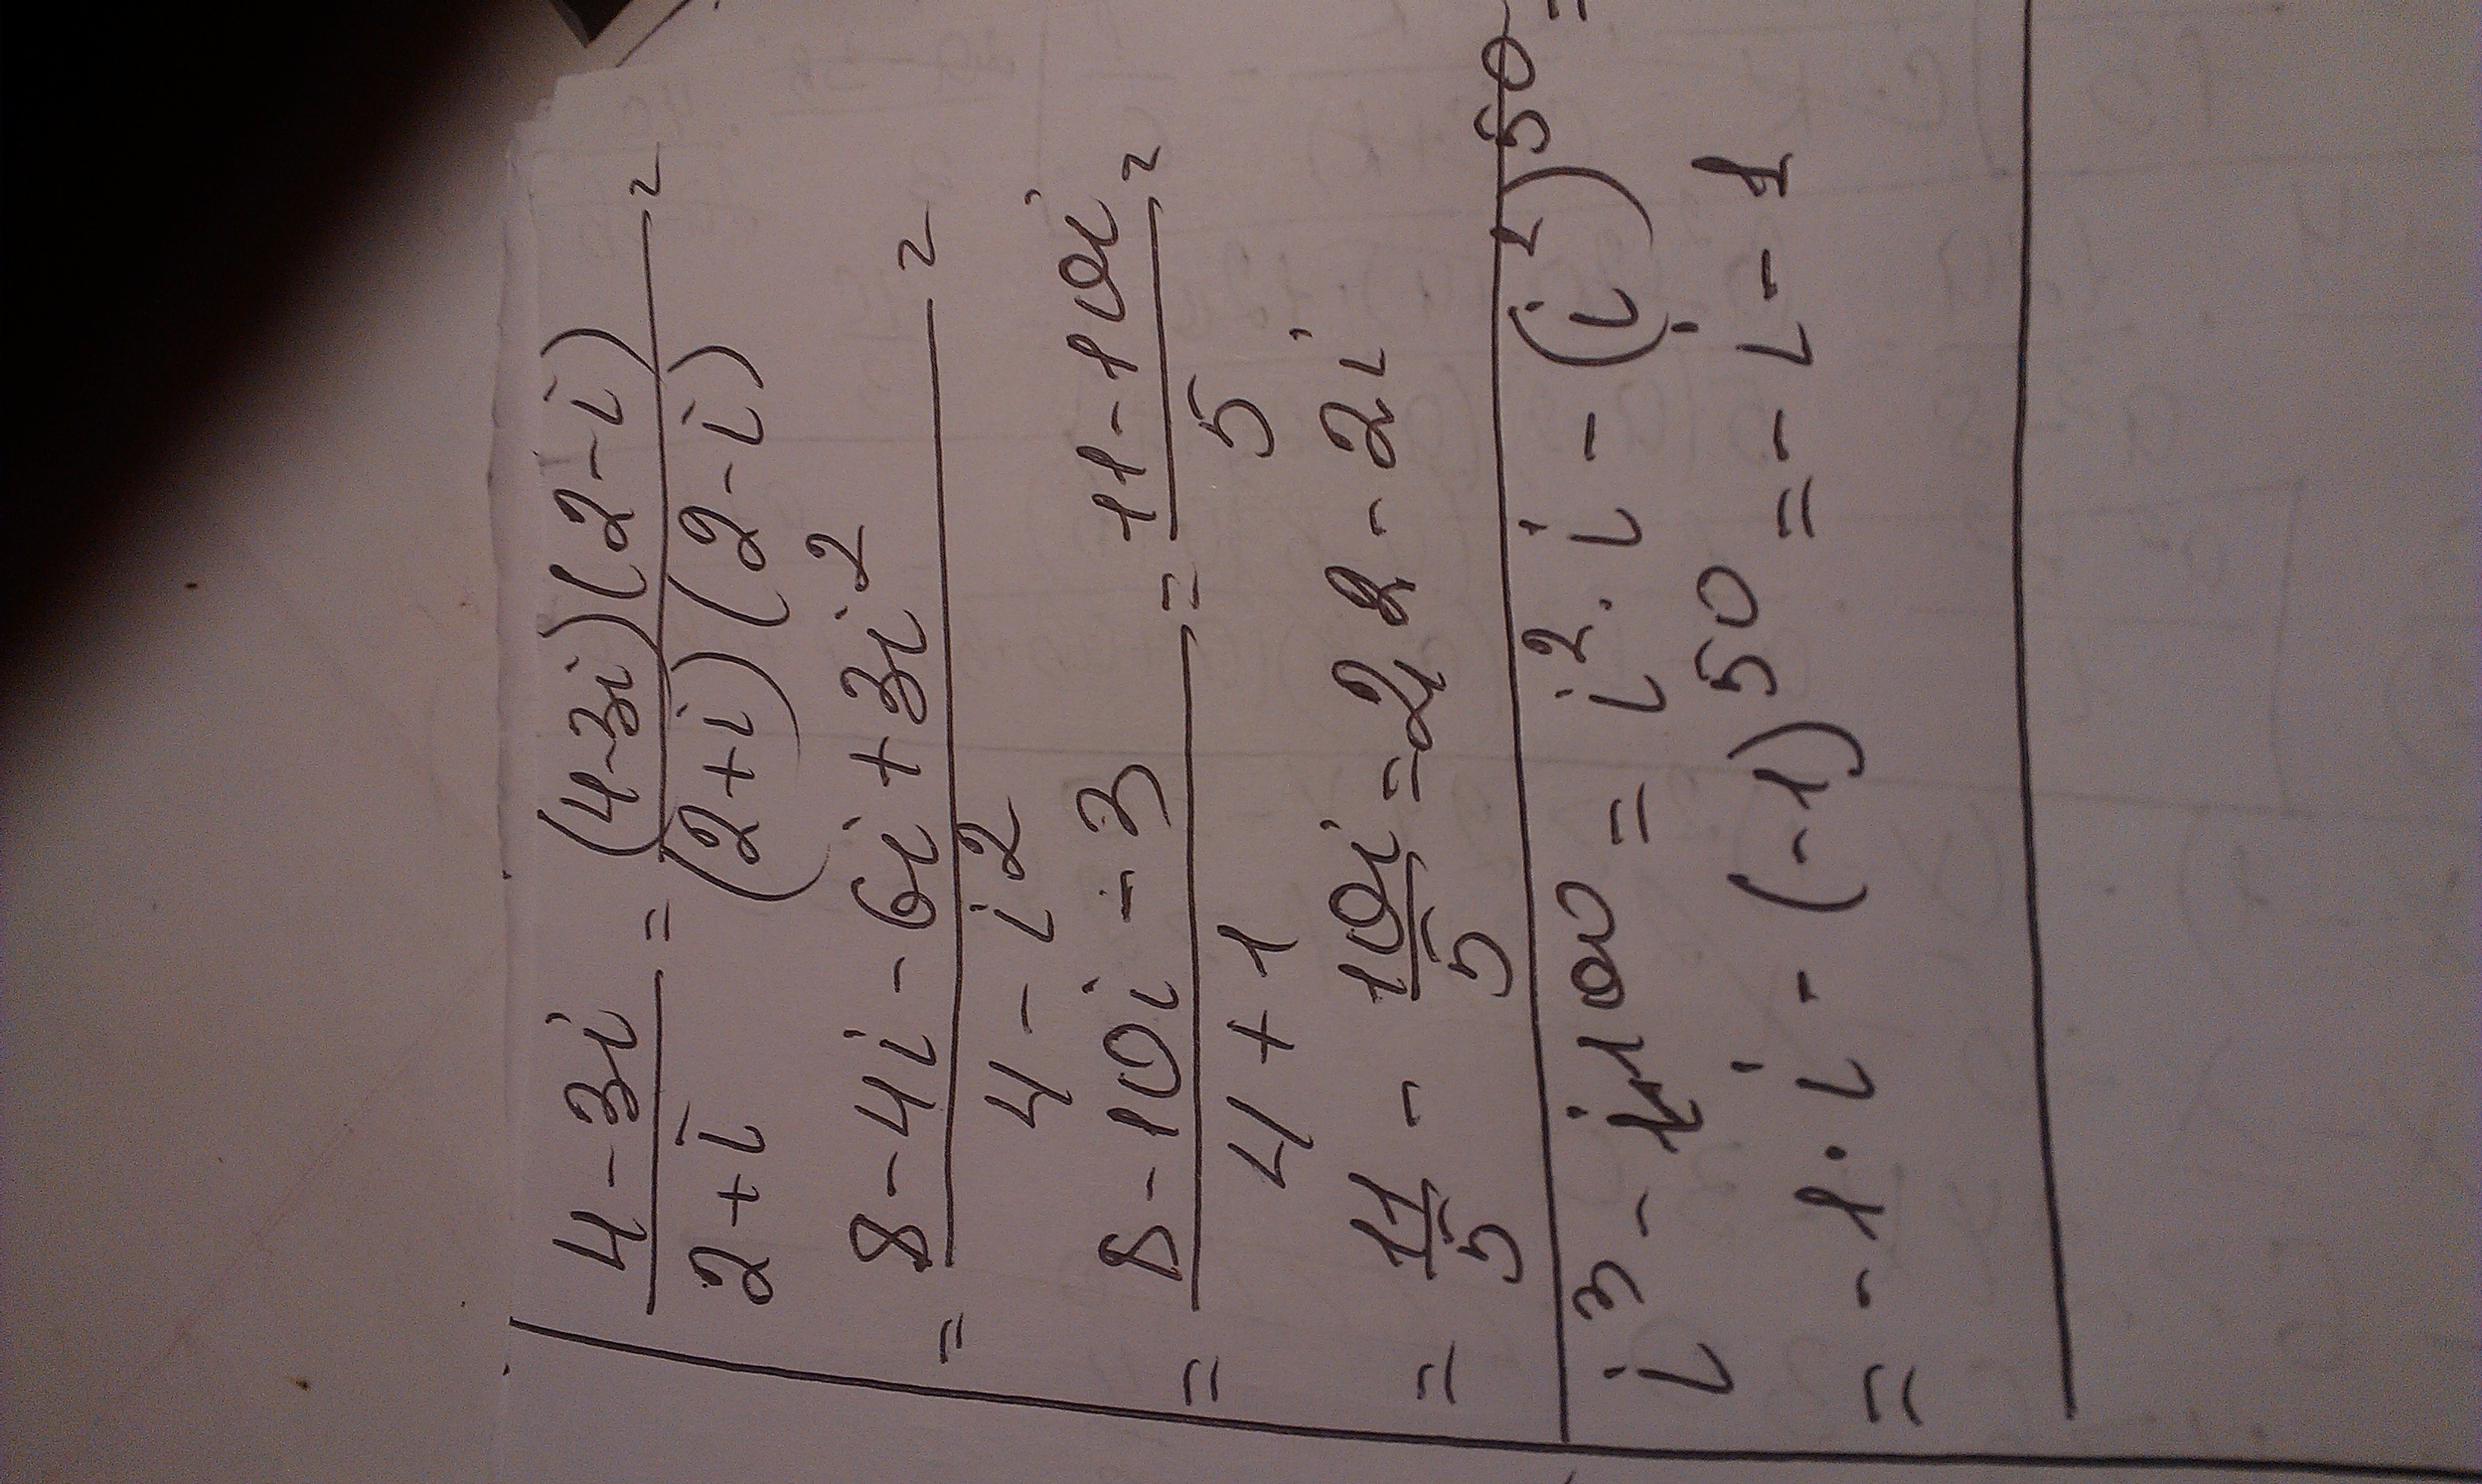 (4-3i)/(2+i) = ((4-3i)(2-i))/((2+i)(2-i)) =
= (8-4i-6i+3i²)/(4-i²) =
= (8-10i-3)/(4+1) = (11-10i)/5 =
= 11/5 - 10i/5 = 2,2 - 2i
i³ - i¹⁰⁰ = i²·i - (i²)⁵⁰ =
= -1·i - (-1)⁵⁰ = -i-1